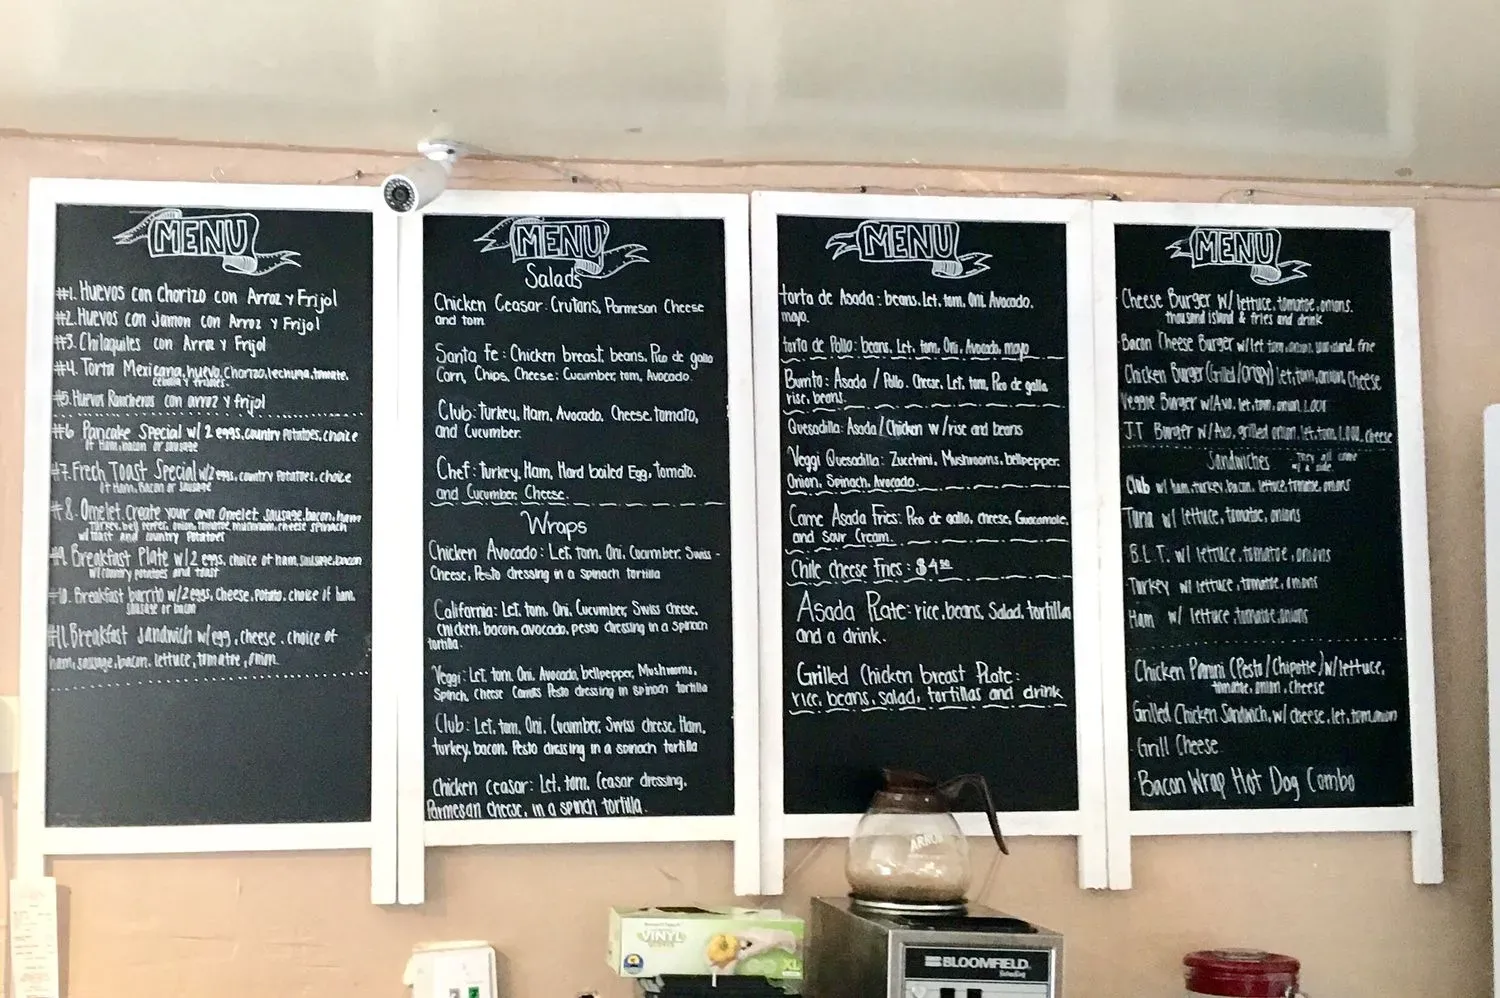 MENU
#1. Huevos con Chorizo con Arroz y Frijol
#2. Huevos con Jamon con Arroz y Frijol
#3. Chilaquiles con Arroz y Frijol
#4. Torta Mexicana, huevo, chorizo, lechuga, tomate,
cebolla y frijoles.
#5. Huevos Rancheros con arroz y frijol
#6 Pancake Special w/ 2 eggs, country potatoes, choice
of Ham, bacon or sausage
#7. Frech Toast Special w/ 2 eggs, country potatoes, choice
of Ham, Bacon or sausage
#8. Omelet. Create your own omelet. sausage, bacon, ham
turkey, bell pepper, onion, tomatoe, mushroom, cheese spinach
w/ toast and country potatoes
#9. Breakfast Plate w/ 2 eggs, choice of ham, sausage, bacon
w/ country potatoes and toast
#10. Breakfast burrito w/ 2 eggs, cheese, potato, choice of ham,
sausage or bacon
#11. Breakfast sandwich w/ egg, cheese, choice of
ham, sausage, bacon, lettuce, tomatoe, onion.
MENU
Salads
Chicken Ceasar: Crutons, Parmesan Cheese
and tom
Santa Fe: Chicken breast, beans, Pico de gallo
Corn, Chips, Cheese: Cucumber, tom, Avocado.
Club: Turkey, Ham, Avocado, Cheese, tomato,
and Cucumber.
Chef: Turkey, Ham, Hard boiled Egg, tomato,
and Cucumber, Cheese.
Wraps
Chicken Avocado: Let, tom, Oni, Cucumber, Swiss -
Cheese, Pesto dressing in a spinach tortilla
California: Let, tom, Oni, Cucumber, Swiss cheese,
chicken, bacon, avocado, pesto dressing in a spinach
tortilla.
Veggi: Let, tom, Oni, Avocado, bellpepper, Mushrooms,
Spinch, Cheese Carrots Pesto dressing in spinach tortilla
Club: Let, tom, Oni, Cucumber, Swiss cheese, Ham,
turkey, bacon, Pesto dressing in a spinach tortilla
Chicken ceasar: Let, tom, Ceasar dressing,
Parmesan cheese, in a spinch tortilla.
MENU
torta de Asada: beans, Let, tom, Oni, Avocado,
mayo,
torta de Pollo: beans, Let, tom, Oni, Avocado, mayo
Burrito: Asada / Pollo. Cheese, Let, tom, Pico de gallo
rise, beans.
Quesadilla: Asada/Chicken w/rise and beans
Veggi Quesadilla: Zucchini, Mushrooms, bellpepper,
Onion, Spinach, Avocado.
Carne Asada Fries: Pico de gallo, cheese, Guacamole,
and Sour Cream.
Chile cheese Fries: $4
Asada Plate: rice, beans, Salad, tortillas
and a drink.
Grilled Chicken breast Plate:
rice, beans, salad, tortillas and drink
MENU
Cheese Burger w/ lettuce, tomatoe, onions.
thousand island & fries and drink
Bacon Cheese Burger w/ let tom, onion, island, frie
Chicken Burger (Grilled/Crispy) let, tom, onion, cheese
Veggie Burger w/ Avo, let, tom, onion, 1,000
J.T Burger w/ Avo, grilled onion, let, tom, 1,000, cheese
Sandwiches They all come
w/ a side.
Club w/ ham, turkey, bacon, lettuce, tomatoe, onions
Tuna w/ lettuce, tomatoe, onions
B.L.T. w/ lettuce, tomatoe, onions
Turkey w/ lettuce, tomatoe, onions
Ham w/ lettuce tomatoe, onions
Chicken Panini (Pesto/Chipotle) w/ lettuce,
tomatoe, onion, cheese
Grilled Chicken Sandwich, w/ cheese, let, tom, onion
Grill Cheese
Bacon Wrap Hot Dog Combo
VINYL
XL
BLOOMFIELD